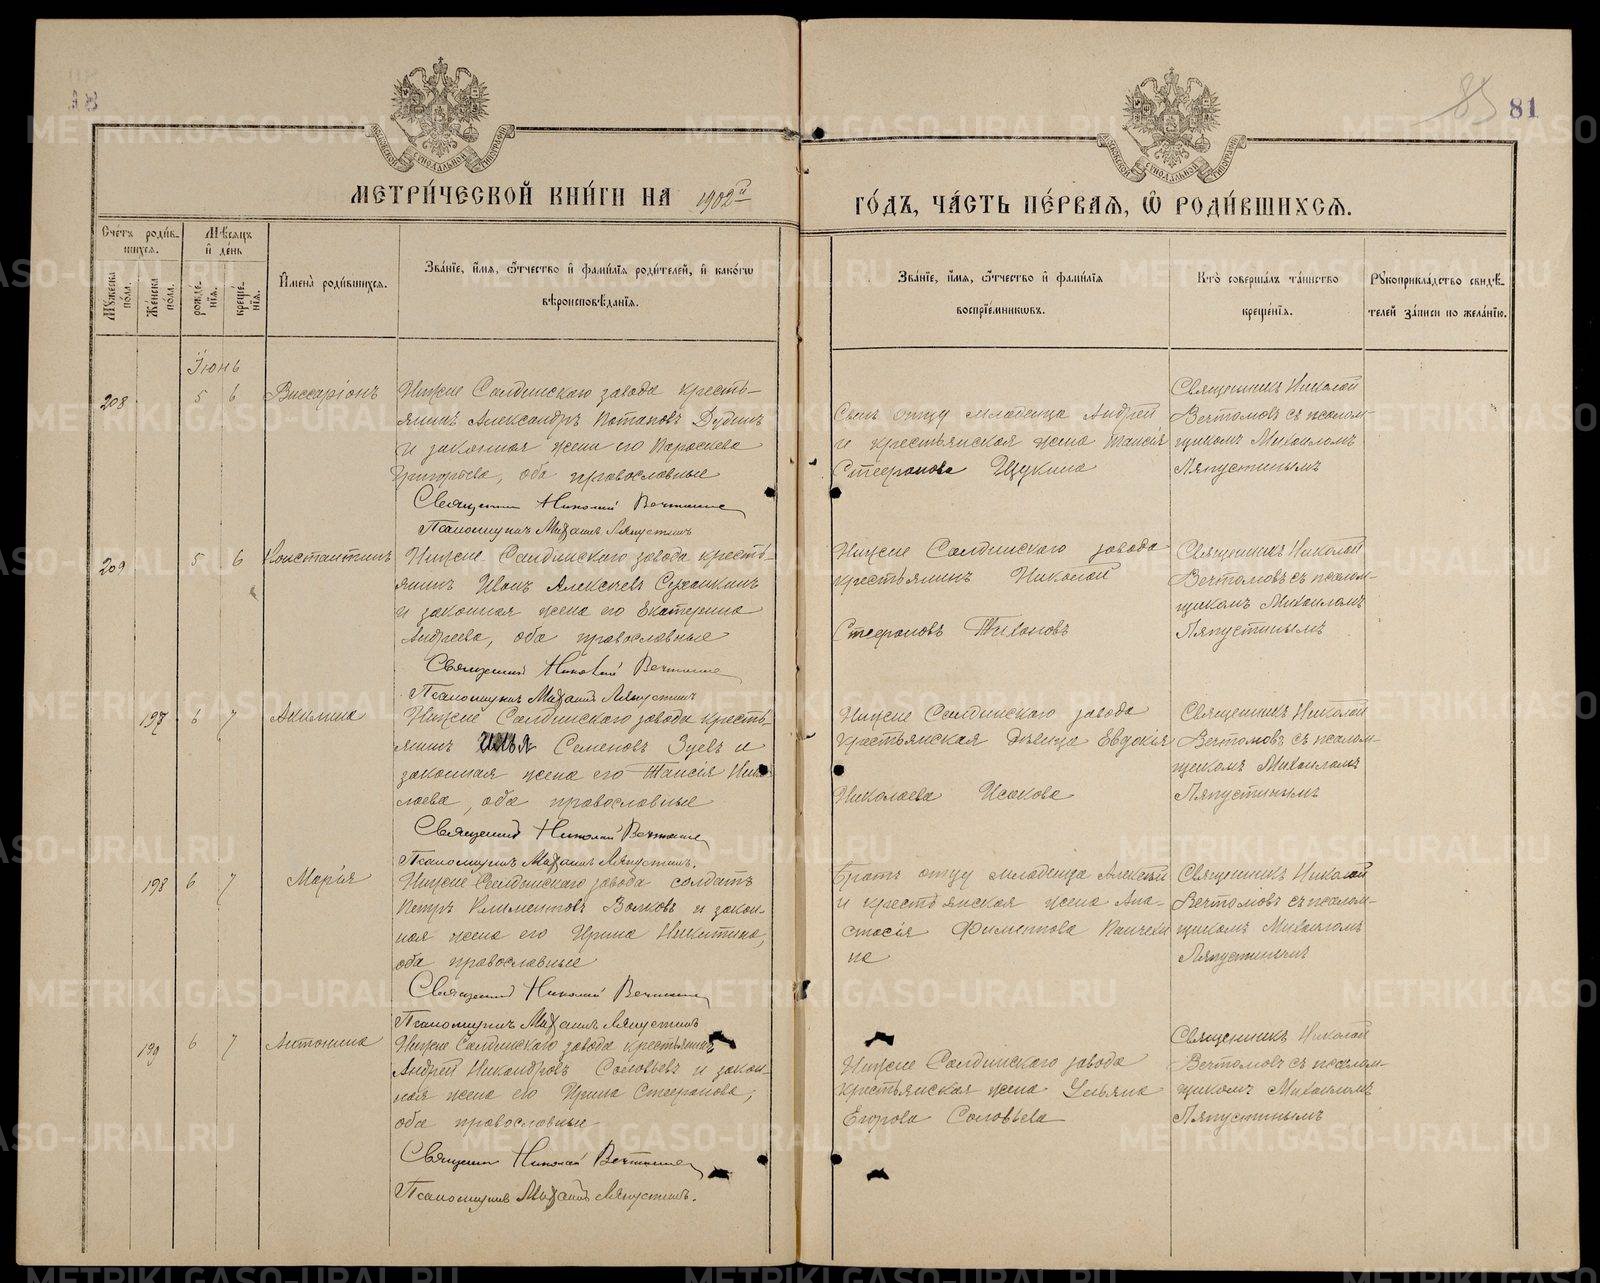 85 81
МЕТРИ́ЧЕСКОЙ КНИ́ГИ НА 1902й
ГО́ДЪ, ЧА́СТЬ ПЕ́РВАѦ, Ѿ РОДИ́ВШИХСѦ.
Сче́тъ роди́в-
шихсѧ.
Мѣ́сѧцъ
и҆ де́нь
Мꙋ́жеска по́ла.
Же́нска по́ла.
рожде́-
нїѧ.
креще́-
нїѧ.
И҆мена̀ роди́вшихсѧ.
Зва́нїе, и҆́мѧ, ѻ҆́тчество и҆ фами́лїѧ роди́телей, и҆ како́гѡ
вѣроисповѣ́данїѧ.
Зва́нїе, и҆́мѧ, ѻ҆́тчество и҆ фами́лїѧ
воспрїе́мникѡвъ.
Кто̀ соверша́лъ та́инство
креще́нїѧ.
Рꙋкоприкла́дство свидѣ́-
телей за́писи по жела́нїю.
Іюнь
208 5 6 Виссаріонъ
Нижне Салдинскаго завода кресть-
янинъ Александръ Потаповъ Дудинъ
и законная жена его Параскева
Григорьева, оба православные
Священник Николай Вечтомов
Псаломщикъ Михаилъ Ляпустинъ
Сынъ отцу младенца Андрей
и крестьянская жена Таисія
Стефанова Щукина
Священникъ Николай
Вечтомовъ съ псалом-
щикомъ Михаиломъ
Ляпустинымъ
209 5 6 Константинъ
Нижне Салдинскаго завода кресть-
янинъ Иванъ Алексѣевъ
и законная жена его Екатерина
Андреева, оба православные
Священник Николай Вечтомов
Псаломщикъ Михаилъ Ляпустинъ
Нижне Салдинскаго завода
крестьянинъ Николай
Стефановъ Тихоновъ
Священникъ Николай
Вечтомовъ съ псалом-
щикомъ Михаиломъ
Ляпустинымъ
197 6 7 Акилина
Нижне Салдинскаго завода кресть-
янинъ Илья Семеновъ Зуевъ и
законная жена его Таисія Нико-
лаева, оба православные
Священник Николай Вечтомов
Псаломщикъ Михаилъ Ляпустинъ.
Нижне Салдинскаго завода
крестьянская дѣвица Евдокія
Николаева Исакова
Священникъ Николай
Вечтомовъ съ псалом-
щикомъ Михаиломъ
Ляпустинымъ
198 6 7 Марія
Нижне Салдинскаго завода солдатъ
Петръ Климентовъ Волковъ и закон-
ная жена его Ирина Никитина,
оба православные
Священник Николай Вечтомов
Псаломщикъ Михаилъ Ляпустинъ
Братъ отцу младенца Алексѣй
и крестьянская жена Ана-
стасія
на
Священникъ Николай
Вечтомовъ съ псалом-
щикомъ Михаиломъ
Ляпустинымъ
199 6 7 Антонина
Нижне Салдинскаго завода крестьянинъ
Андрей Никандровъ Соловьевъ и закон-
ная жена его Ирина Стефанова,
оба православные
Священник Николай Вечтомов
Псаломщикъ Михаилъ Ляпустинъ.
Нижне Салдинскаго завода
крестьянская жена Ульяна
Егорова Соловьева
Священникъ Николай
Вечтомовъ съ псалом-
щикомъ Михаиломъ
Ляпустинымъ
METRIKI.GASO-URAL.RU